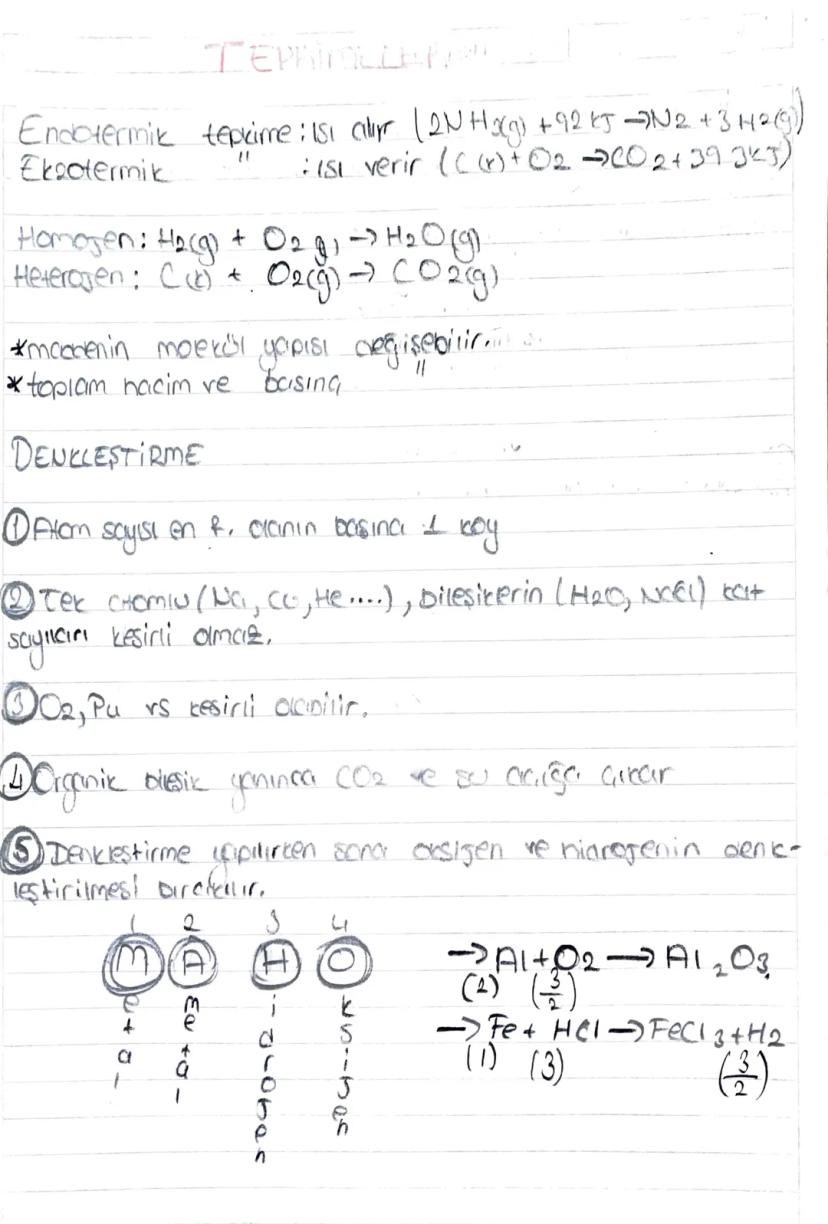 TEPKİMELER
Endotermik tepkime: ısı alır (2NH3(g) + 92 kJ → N2 + 3H2(g))
Ekzotermik " : ısı verir (C(k) + O2 → CO2 + 393kJ)
Homojen: H2(g) + O2(g) → H2O(g)
Heterojen: C(k) + O2(g) → CO2(g)
*maddenin molekül yapısı değişebilir.
*toplam hacim ve basınç "
DENKLEŞTİRME
① Atom sayısı en f. olanın başına 1 koy
② Tek atomlu (Na, Ca, He....), bileşiklerin (H2O, NaCl) kat
sayıları kesirli olmaz.
③ O2, Pu vs kesirli olabilir.
4 Organik bileşik yanınca CO2 ve su açığa çıkar
⑤ Denkleştirme yapılırken sona oksijen ve hidrojenin denk-
leştirilmesi bırakılır.
1 2 3 4
Metal Ametal Hidrojen Oksijen
→ Al + O2 → Al2O3
(2) (3/2)
→ Fe + HCl → FeCl3 + H2
(1) (3) (3/2)